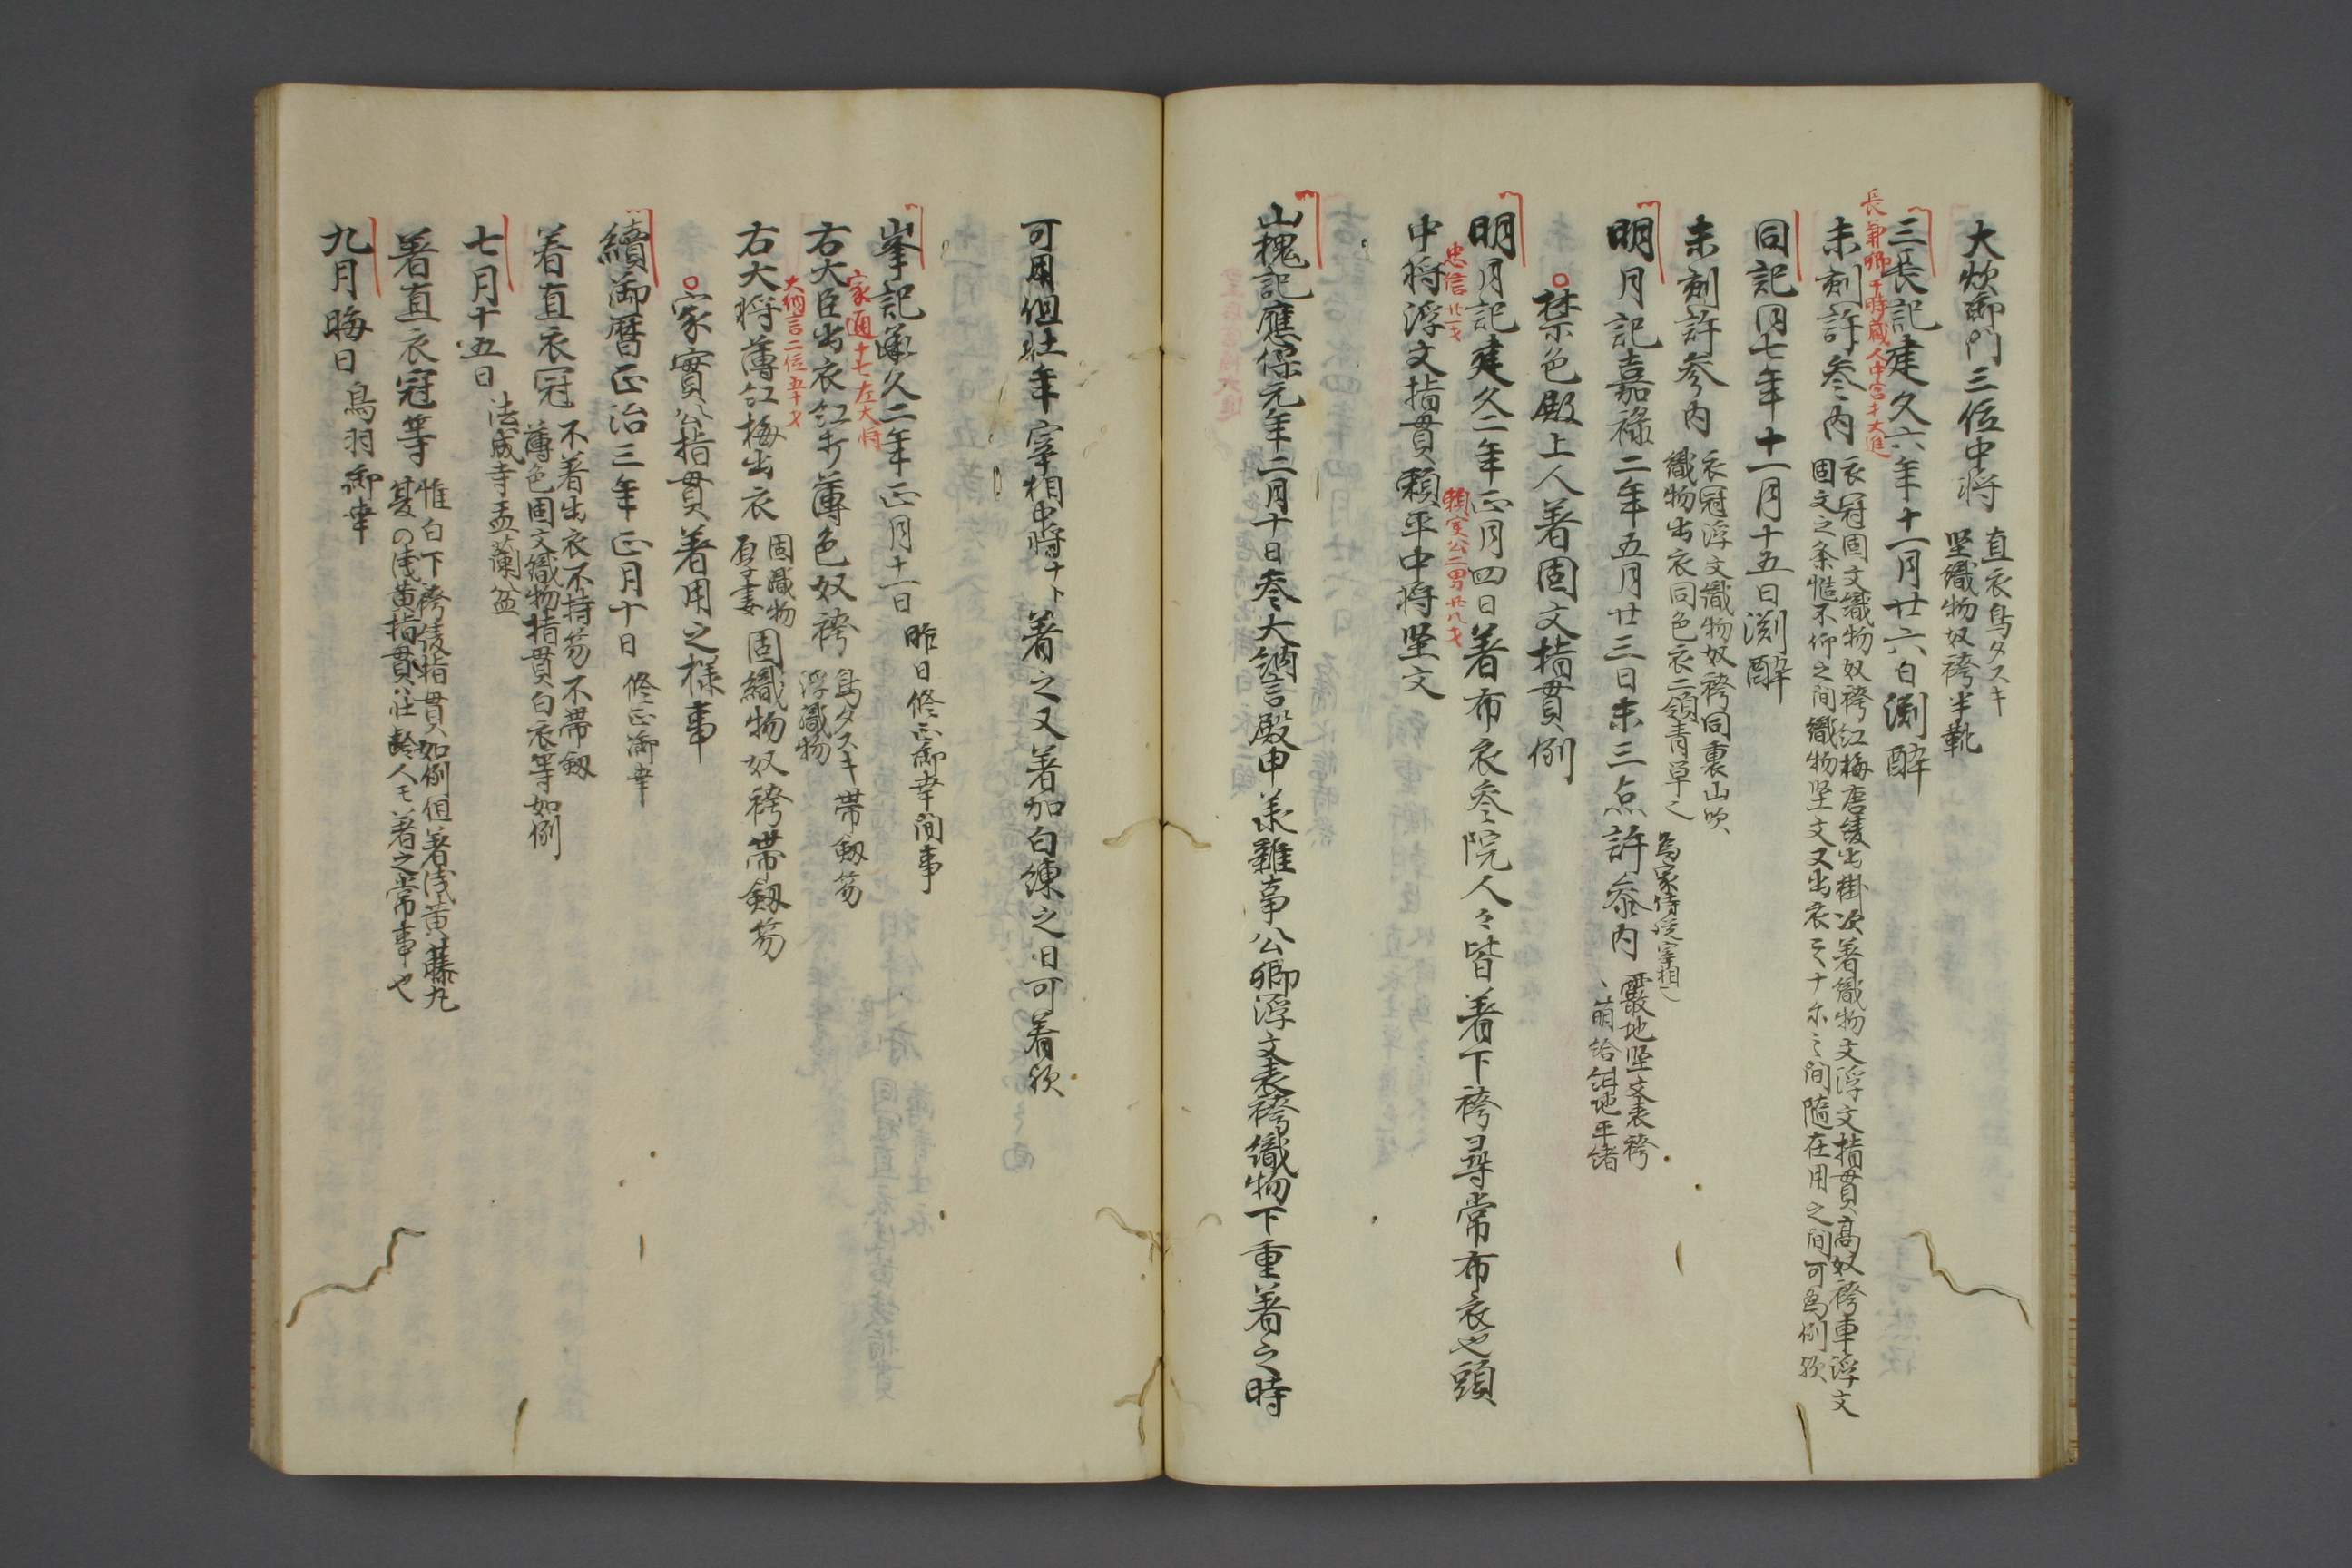 大炊御門三位中将
直衣鳥タスキ
堅織物奴袴半靴
三長記建久六年十一月廿六日渕酔
長兼卿于時蔵人中宮才大進
未刻許参内
衣冠固文織物奴袴紅梅唐綾出褂次著織物文浮文指貫高奴袴車浮文
固文之条惟不仰之間織物堅文又出衣
間随在用之間可為例歟
同記同七年十一月十五日渕酔
未刻許参内
衣冠浮文織物奴袴同裏山吹
織物出衣同色衣二領青単之
明月記嘉禄二年五月廿三日未三点許参内
為家侍従宰相
霰地堅文表袴
萌給紺地平緒
禁色殿上人著固文指貫例
明月記建久二年正月四日著布衣参院人々皆著下袴尋常布衣也頭
忠信廿一才
頼実公二男廿八才
中将浮文指貫頼平中将堅文
山槐記應保元年二月十日参大納言殿申羕雑事公卿浮文表袴織物下重著之時
可用但壮年宰相中将ナト著之又著加白練之日可着歟
峯記承久二年正月十一日
昨日修正御幸間事
家通十七左大将
右大臣出衣紅打薄色奴袴
鳥タスキ帯劔笏
浮織物
大納言二位五十才
右大将薄紅梅出衣
固織物
固織物奴袴帯劔笏
家實公指貫著用之様事
續御暦正治三年正月十日
修正御幸
着直衣冠
不著出衣不持笏不帯劔
薄色固文織物指貫白衣等如例
七月十五日
法成寺盂蘭盆
著直衣冠等
惟白下袴綾指貫如例但著浅黄藤丸
夏の浅黄指貫壮齢人モ著之常事也
九月晦日
鳥羽御幸